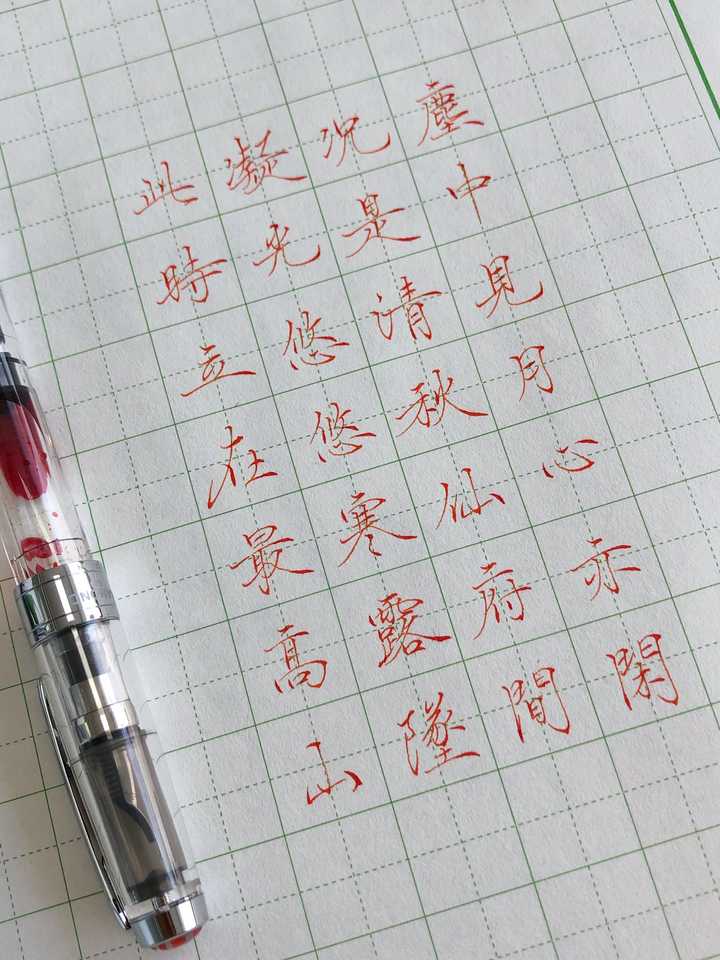 塵中見月心亦閑
況是清秋仙府間
凝光悠悠寒露墜
此時立在最高山